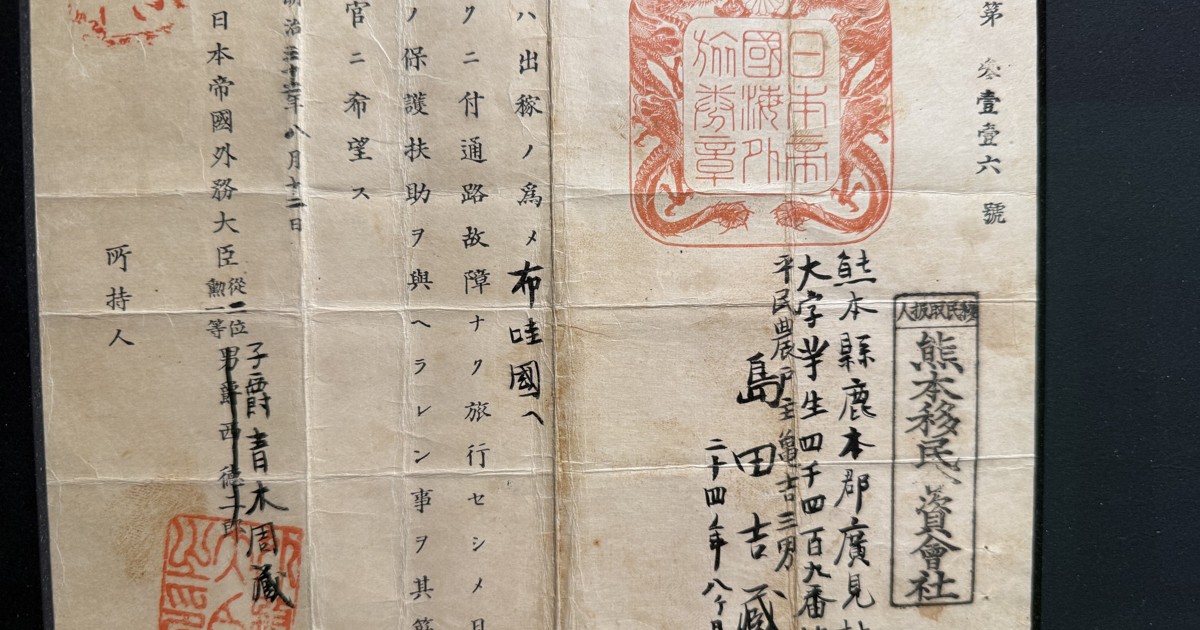 第參壹壹六號
日本帝
國海外
旅券章
移民取扱人
熊本移民 資會社
熊本縣鹿本郡廣見
大字芋生四千四百九番
平民農戸主亀吉三男
島田吉蔵
二十四年八ケ月
ハ出稼ノ爲メ布哇國ヘ
クニ付通路故障ナク旅行セシメ
ノ保護扶助ヲ與ヘラレン事ヲ其
官ニ希望ス
治 年八月十二日
日本帝國外務大臣從二位勲一等男爵西德二郎
子爵青木周蔵
所持人